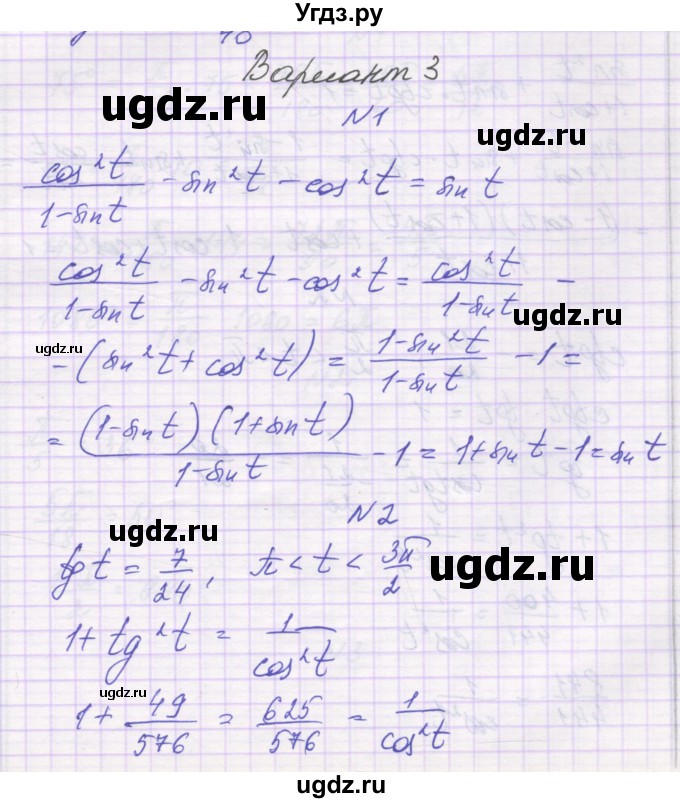 Угдз.ру
10
Вариант 3
ugdz.ru ugdz.ru
N1
cos²t/(1-sin t) - sin²t - cos²t = sin t
ugdz.ru
cos²t/(1-sin t) - sin²t - cos²t = cos²t/(1-sin t) -
ugdz.ru
ugdz.ru
- (sin²t + cos²t) = (1-sin²t)/(1-sin t) - 1 =
= (1-sin t)(1+sin t)/(1-sin t) - 1 = 1+sin t - 1 = sin t
N2
ugdz.ru
tg t = 7/24, π < t < 3π/2
ugdz.ru
1 + tg²t = 1/cos²t
ugdz.ru
1 + 49/576 = 625/576 = 1/cos²t
ugdz.ru
ugdz.ru